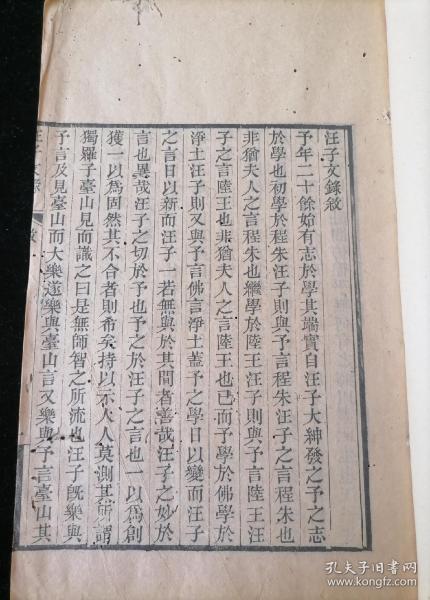 汪子文錄敘
予年二十餘始有志於學其端實自汪子大紳發之予之志
於學也初學於程朱汪子則與予言程朱汪子之言程朱也
非猶夫人之言程朱也繼學於陸王汪子則與予言陸王汪
子之言陸王也非猶夫人之言陸王也已而予學於佛學於
淨土汪子則又與予言佛言淨土蓋予之學日以變而汪子
之言日以新而汪子一若無與於其間者善哉汪子之妙於
言也異哉汪子之切於予也予之於汪子之言也一以為創
獲一以為固然其不合者則希矣持以示人人莫測其所謂
獨羅子臺山見而識之曰是無師智之所流也汪子旣樂與
予言及見臺山而大樂遂樂與臺山言又樂與予言臺山其
汪子文錄
敘
孔夫子旧书网
www.kongfz.com